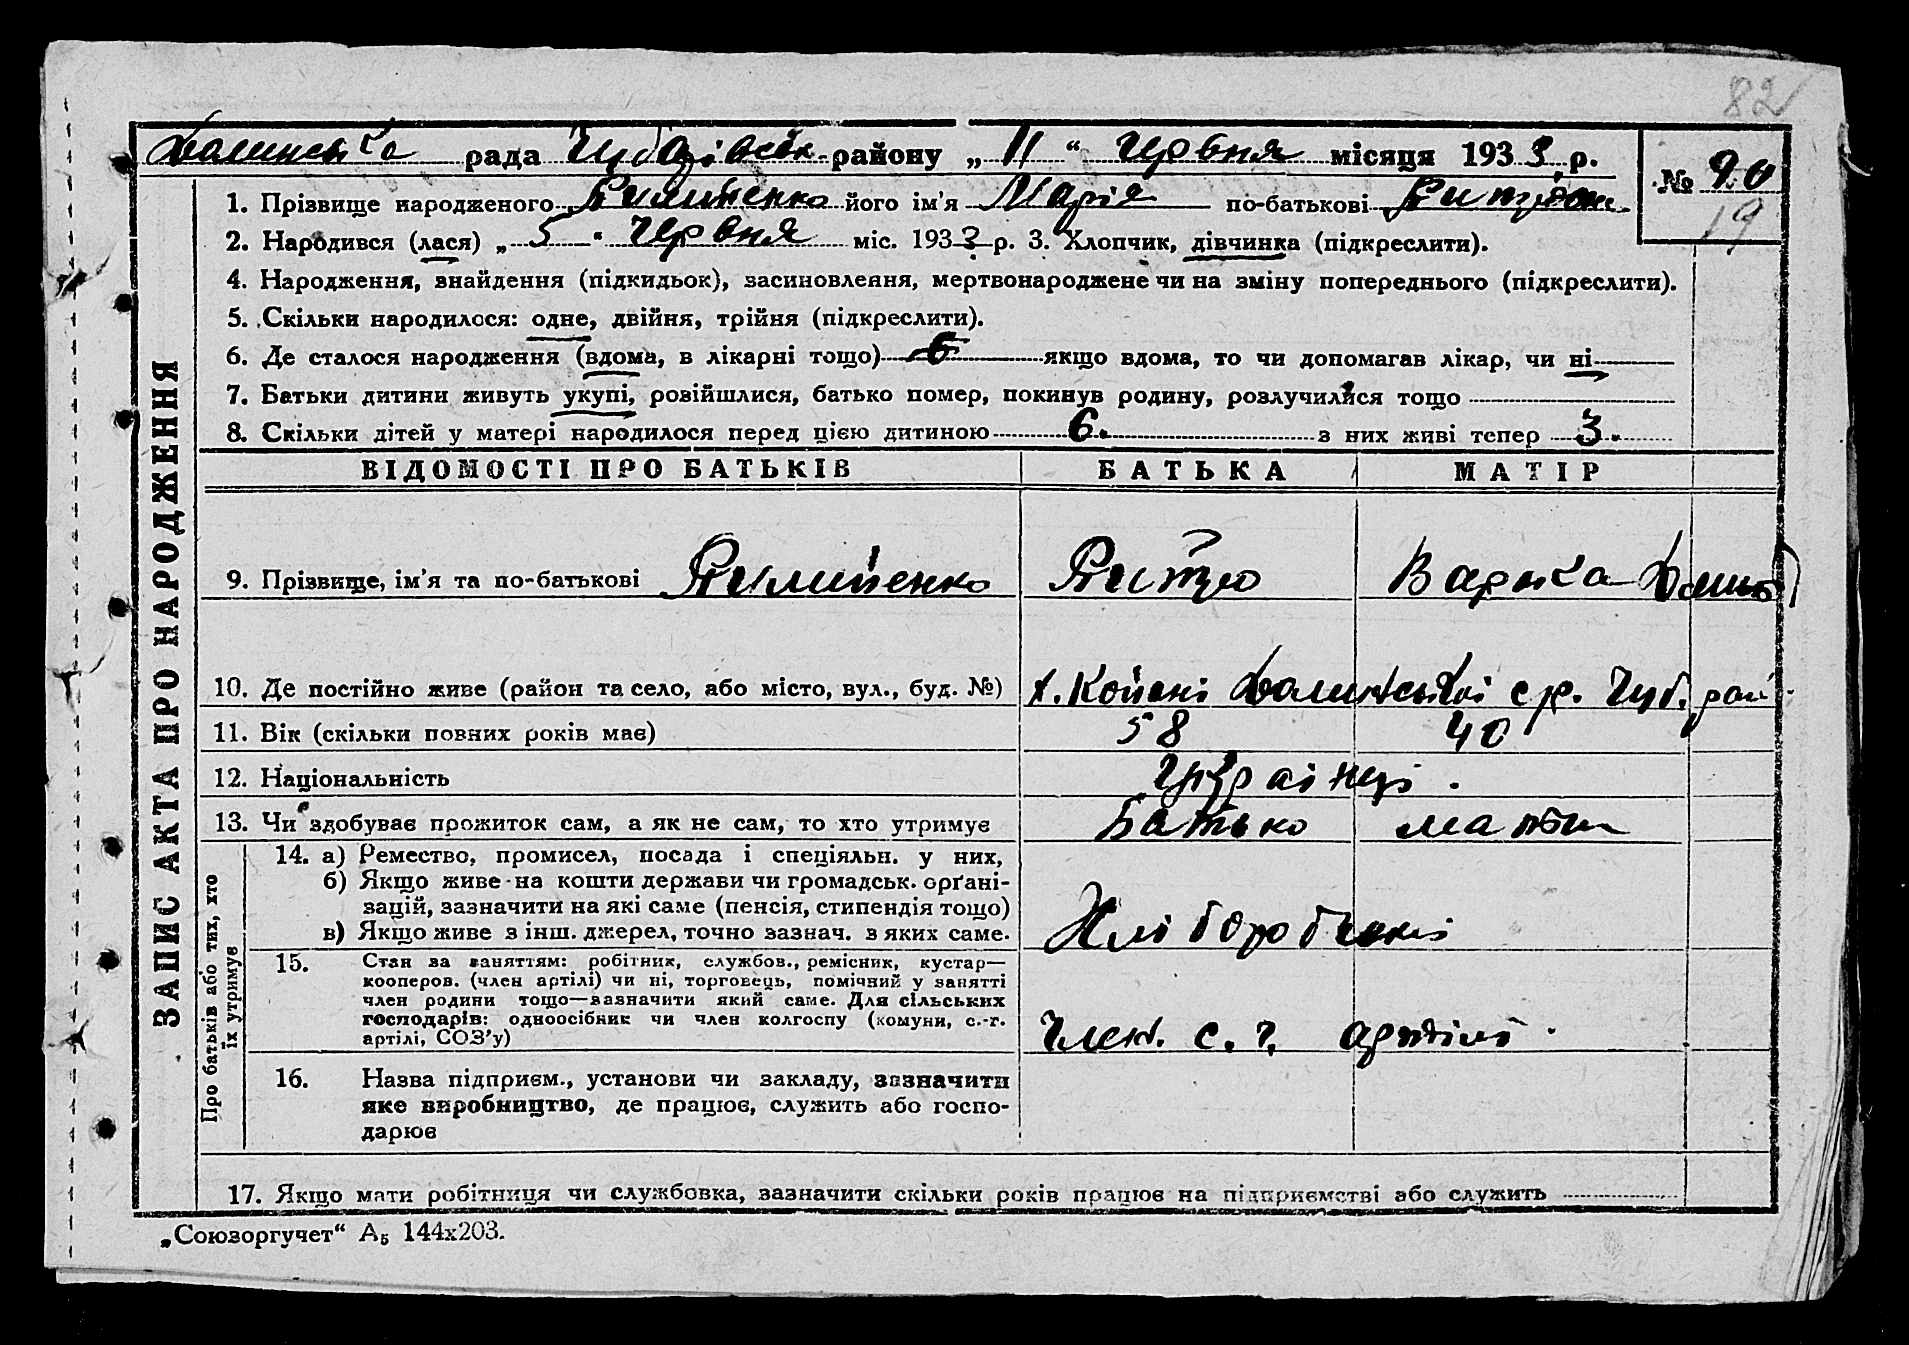 82
Долинська рада Чубарівськ. району „11“ Червня місяця 1933 р.
№ 90
19
1. Прізвище народженого Пилипенко його ім'я Марія по-батькові
2. Народився (лася) „5“ Червня міс. 1933 р. 3. Хлопчик, дівчинка (підкреслити).
4. Народження, знайдення (підкидьок), засиновлення, мертвонароджене чи на зміну попереднього (підкреслити).
5. Скільки народилося: одне, двійня, трійня (підкреслити).
6. Де сталося народження (вдома, в лікарні тощо) якщо вдома, то чи допомагав лікар, чи ні
7. Батьки дитини живуть укупі, розійшлися, батько помер, покинув родину, розлучилися тощо
8. Скільки дітей у матері народилося перед цією дитиною 6. з них живі тепер 3.
ВІДОМОСТІ ПРО БАТЬКІВ БАТЬКА МАТІР
9. Прізвище, ім'я та по-батькові Пилипенко Варька
10. Де постійно живе (район та село, або місто, вул., буд. №) Долинської с.р. Чуб. рай.
11. Вік (скільки повних років має) 58 40
12. Національність Українці.
13. Чи здобуває прожиток сам, а як не сам, то хто утримує Батько мати
14. а) Ремество, промисел, посада і спеціяльн. у них,
б) Якщо живе на кошти держави чи громадськ. орґані-
зацій, зазначити на які саме (пенсія, стипендія тощо)
в) Якщо живе з інш. джерел, точно зазнач. з яких саме.
Хліборобський
15. Стан за заняттям: робітник, службов., ремісник, кустар—
кооперов. (член артілі) чи ні, торговець, помічний у занятті
член родини тощо—зазначити який саме. Для сільських
господарів: одноосібник чи член колгоспу (комуни, с.-г.
артілі, СОЗ'у)
Член. с. г. артілі.
16. Назва підприєм., установи чи закладу, зазначити
яке виробництво, де працює, служить або госпо-
дарює
17. Якщо мати робітниця чи службовка, зазначити скільки років працює на підприємстві або служить
ЗАПИС АКТА ПРО НАРОДЖЕННЯ
Про батьків або тих, хто
їх утримує
„Союзоргучет“ А₅ 144х203.